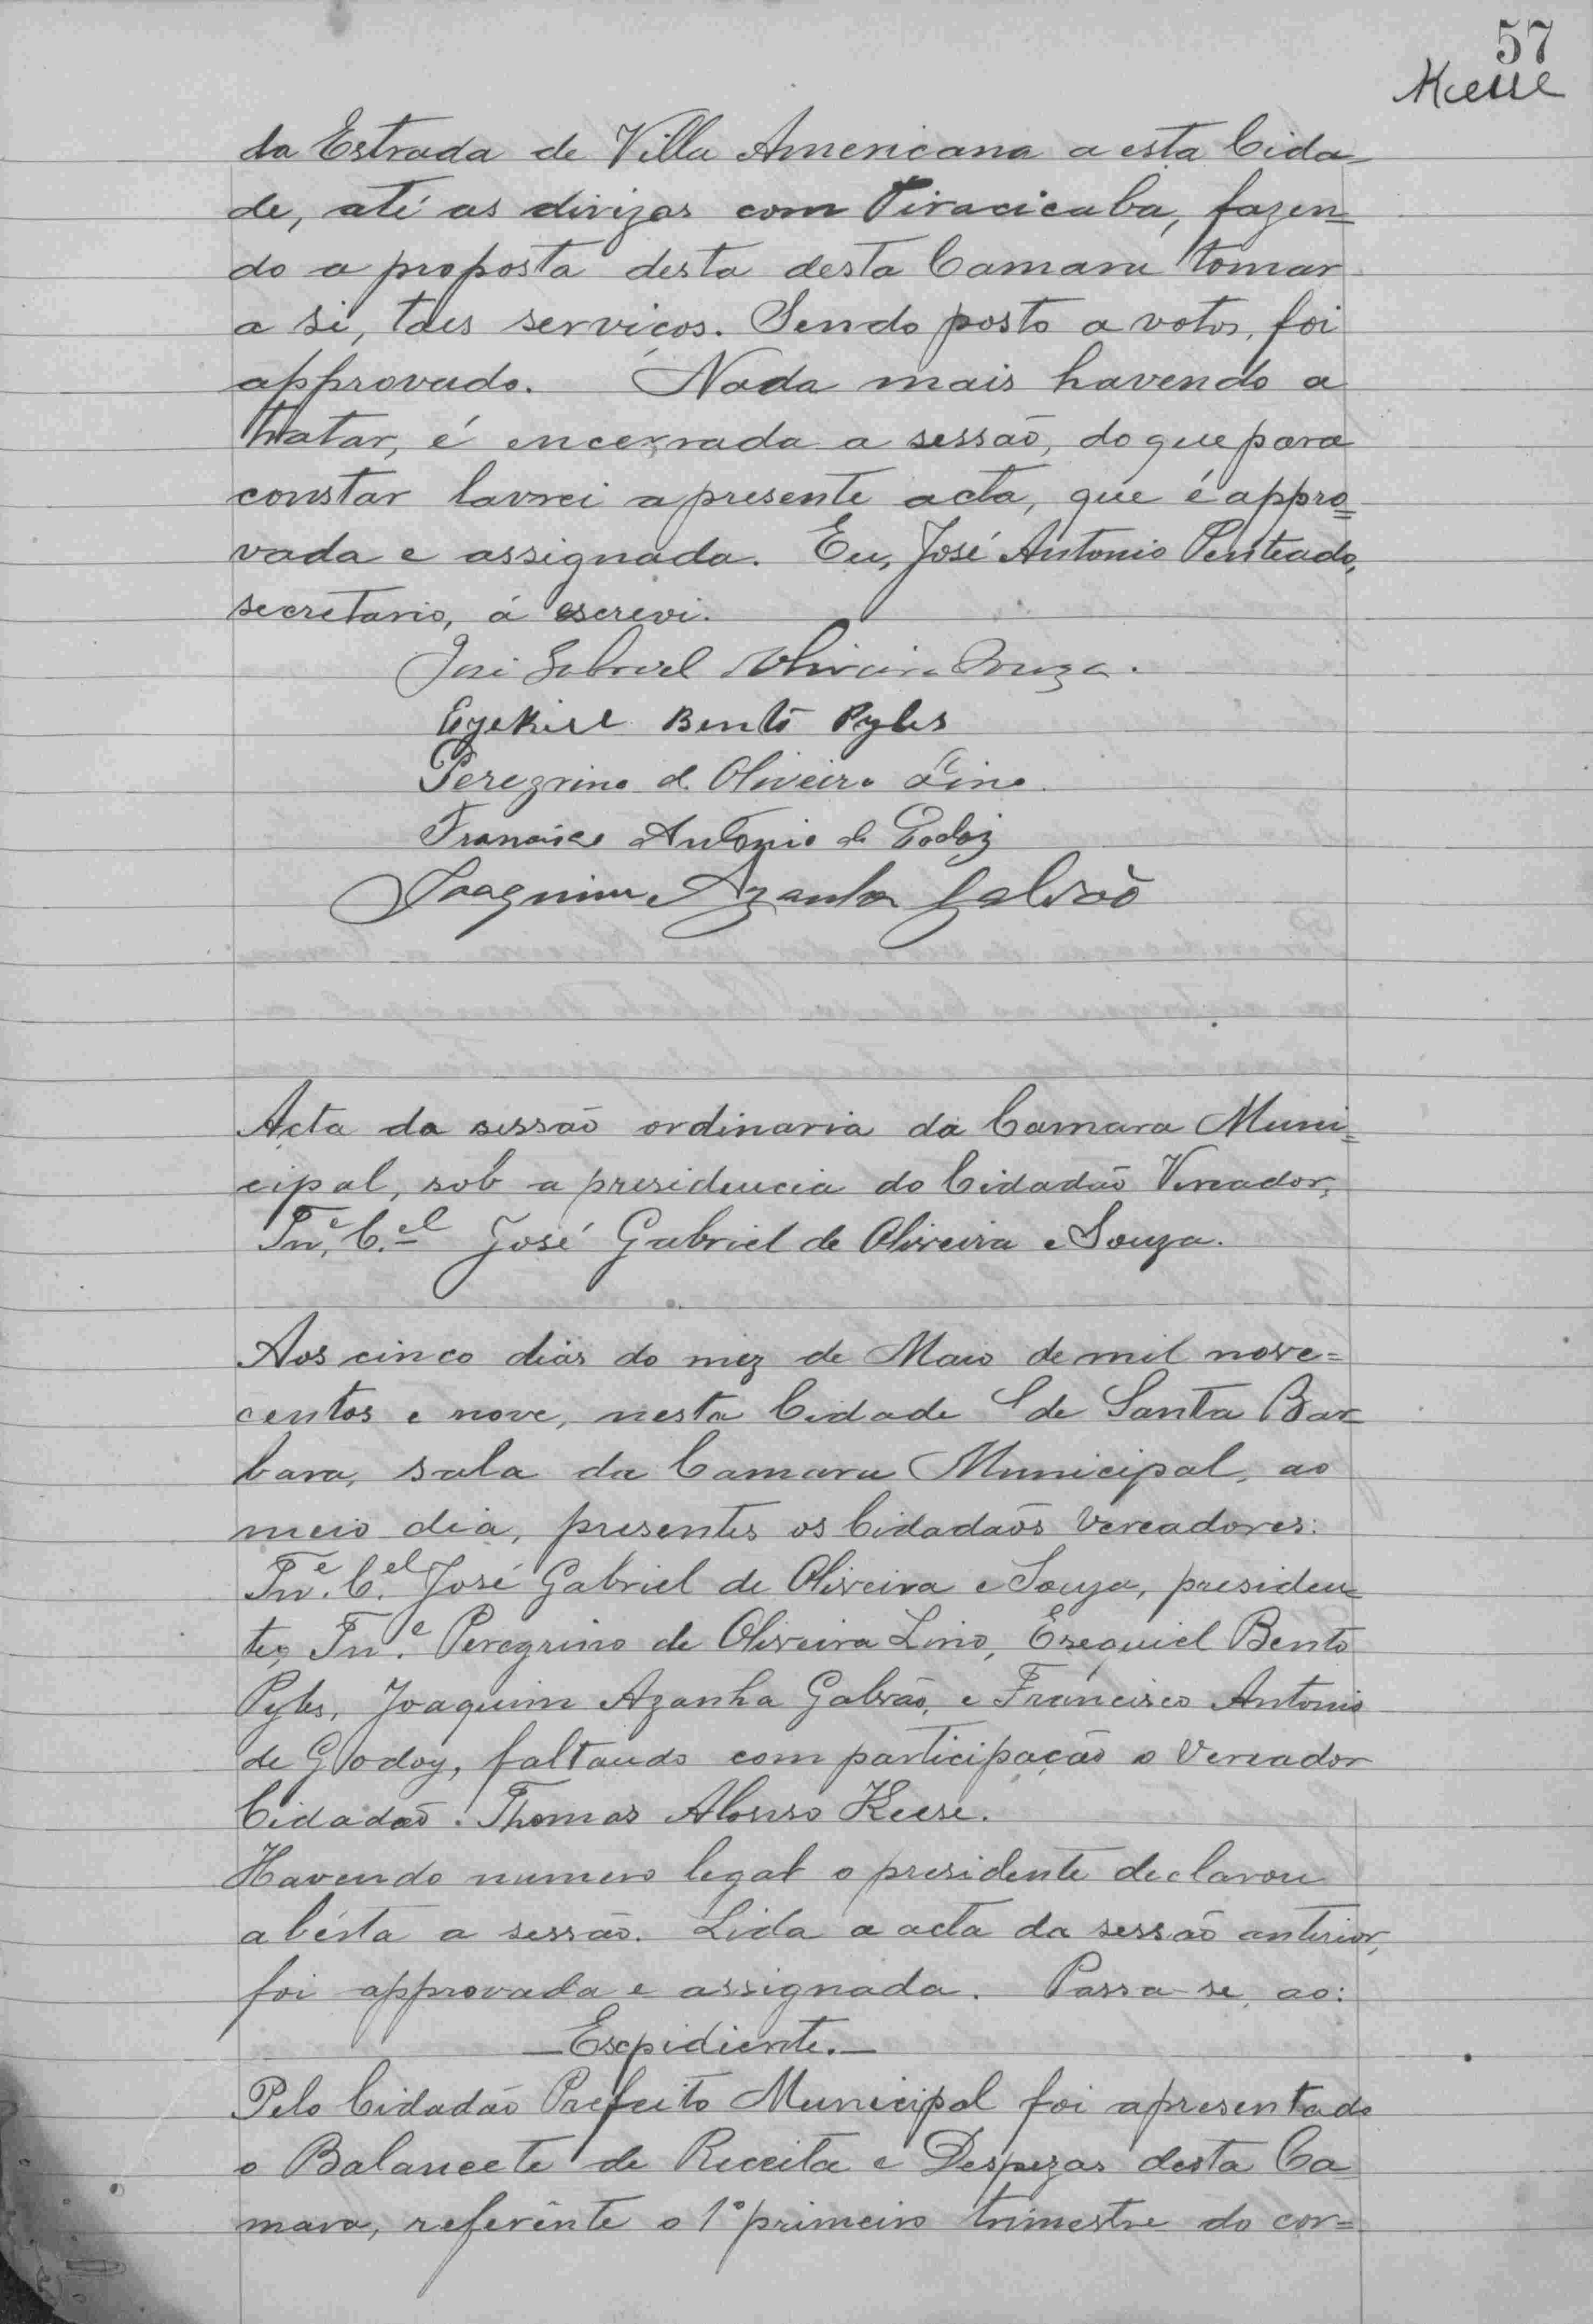 57
Keese
da Estrada de Villa Americana a esta Cida-
de, até as divizas com Piracicaba, fazen=
do a proposta desta desta Camara tomar
a si, taes serviços. Sendo posto a votos, foi
approvado. Nada mais havendo a
tratar, é encerrada a sessão, do que para
constar lavrei a presente acta, que é appro=
vada e assignada. Eu, José Antonio Penteado,
secretario, á escrevi.
José Gabriel Oliveira Souza.
Ezekiel Bento Pyles
Peregrino d. Oliveira Lino.
Francisco Antonio de Godoi
Joaquim Azanha Galvão
Acta da sessão ordinaria da Camara Muni=
cipal, sob a presidencia do Cidadão Vereador,
Tne. C.el José Gabriel de Oliveira e Souza.
Aos cinco dias do mez de Maio de mil nove=
centos e nove, nesta Cidade de Santa Bar-
bara, sala da Camara Municipal, ao
meio dia, presentes os Cidadãos Vereadores:
Tne. C.el José Gabriel de Oliveira e Souza, presiden-
te, Tne. Peregrino de Oliveira Lino, Esequiel Bento
Pyles, Joaquim Azanha Galvão, e Francisco Antonio
de Godoy, faltando com participação o Vereador
Cidadão. Thomas Alonso Keese.
Havendo numero legal o presidente declarou
abérta a sessão. Lida a acta da sessão anterior,
foi approvada e assignada. Passa-se, ao:
—Expidiente.—
Pelo Cidadão Prefeito Municipal foi apresentado
o Balancete de Receita e Despezas desta Ca
mara, referênte o 1º primeiro trimestre do cor=